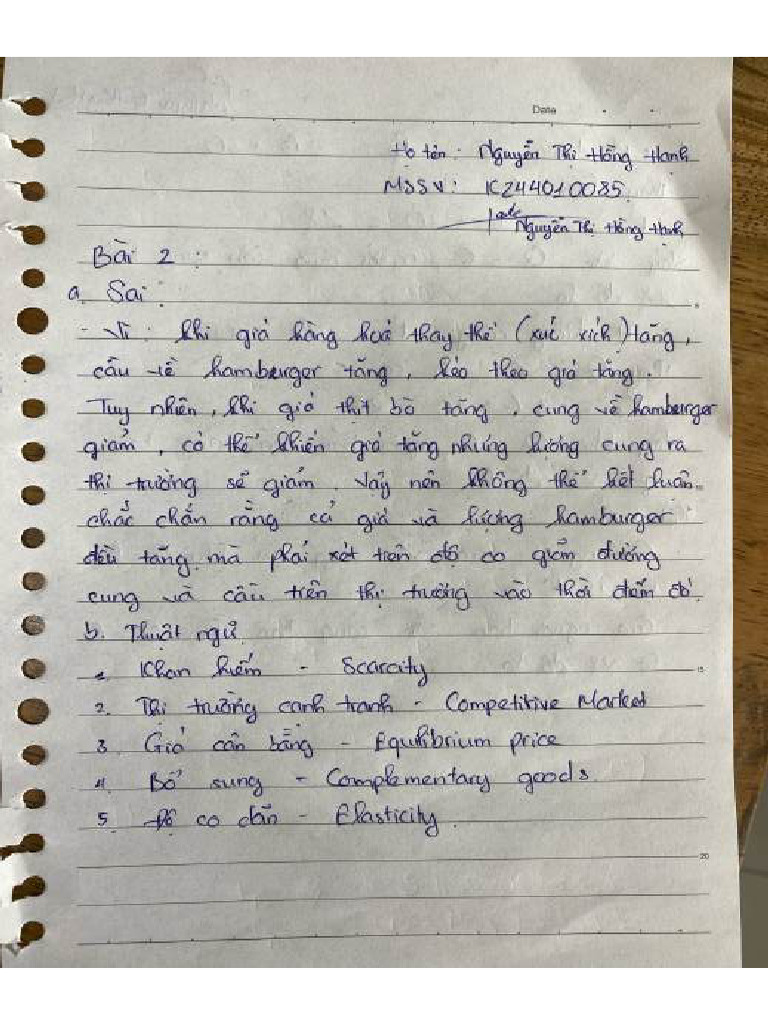 Date
Họ tên : Nguyễn Thị Hồng Hạnh
MSSV : K244010085
Nguyễn Thị Hồng Hạnh
Bài 2 :
a. Sai :
- Vì : khi giá hàng hoá thay thế (xúc xích) tăng,
cầu về hamburger tăng, kéo theo giá tăng.
Tuy nhiên, khi giá thịt bò tăng, cung về hamburger
giảm, có thể khiến giá tăng nhưng lượng cung ra
thị trường sẽ giảm. Vậy nên không thể kết luận
chắc chắn rằng cả giá và lượng hamburger
đều tăng mà phải xét trên độ co giãn đường
cung và cầu trên thị trường vào thời điểm đó.
b. Thuật ngữ
1. Khan hiếm - Scarcity
2. Thị trường cạnh tranh - Competitive Market
3. Giá cân bằng - Equilibrium price
4. Bổ sung - Complementary goods
5. Độ co dãn - Elasticity
15
20